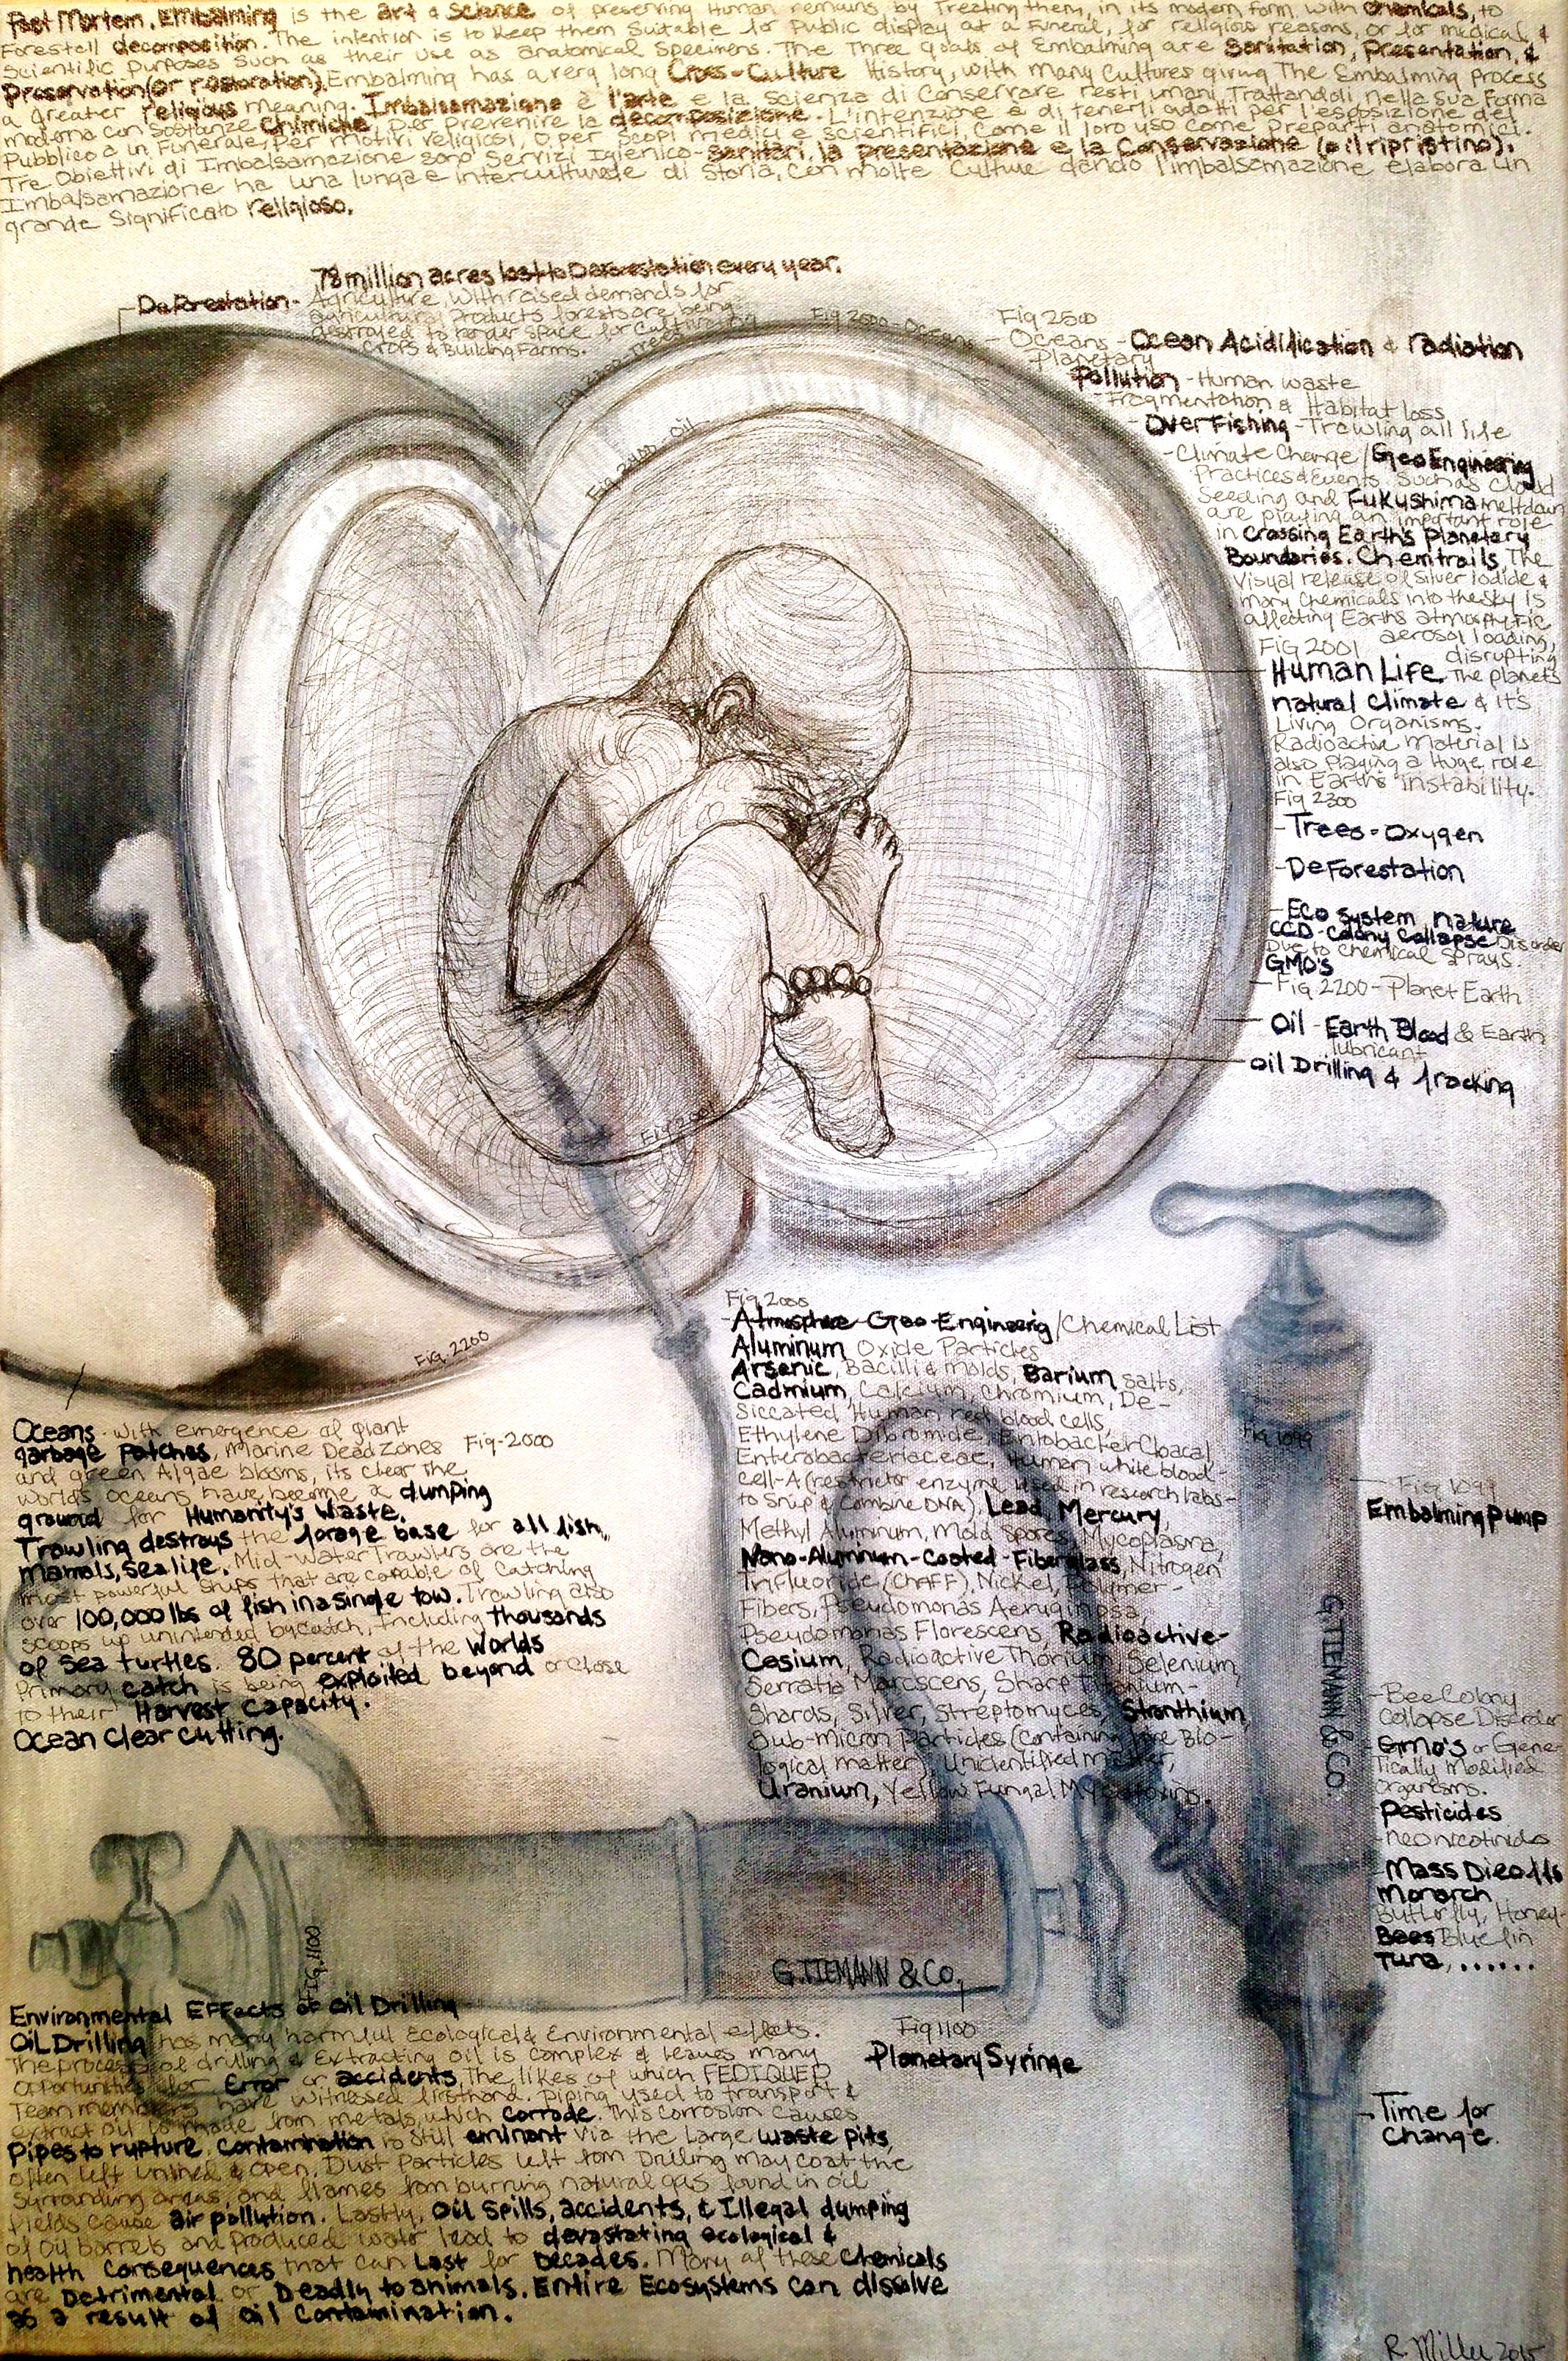 Post Mortem. Embalming is the art & science of preserving Human remains by Treating them, in its modern form with chemicals, to
Forestell decomposition. The intention is to keep them Suitable for Public display at a Funeral, for religious reasons, or for medical &
Scientific Purposes Such as their use as anatomical Specimens. The Three goals of Embalming are Sanitation, presentation, &
Preservation (or restoration). Embalming has a very long Cross-Culture History, with Many Cultures giving The Embalming process
a greater religious meaning. Imbalsamazione è l'arte e la scienza di Conservare resti umani Trattandoli, nella sua Forma
moderna con Sostanze Chimiche, per prevenire la decomposizione. L'intenzione è di tenerli adatti per l'esposizione del
Pubblico a un Funerale, per motivi religiosi, o per Scopi medici e scientifici, come il loro uso come preparti anatomici.
Tre Obiettivi di Imbalsamazione sono Servizi Igienico-sanitari, la presentazione e la Conservazione (o il ripristino).
Imbalsamazione ha una lunga e interculturale di Storia, con molte Culture dando l'imbalsamazione elabora un
grande Significato religioso.
78 million acres lost to Deforestation every year.
Deforestation - Agriculture, With raised demands for
agricultural Products forests are being
destroyed to render space for Cultivating
Crops & Building Farms.
Fig 2300 - Trees
Fig 2500 - Oceans
Fig 2400 - Oil
Fig 2500
- Oceans - Ocean Acidification & radiation
Planetary
Pollution - Human waste
- Fragmentation & Habitat loss
- Over Fishing - Trawling all life
- Climate Change / Geo Engineering
Practices & Events. Such as Cloud
Seeding and Fukushima meltdown
are playing an important role
in Crossing Earth's Planetary
Boundaries. Chemtrails, The
Visual release of Silver Iodide &
many Chemicals into the sky is
affecting Earths atmosphyric
aerosol loading,
Fig 2001 disrupting
Human Life The planets
natural Climate & It's
Living Organisms.
Radioactive Material is
also Playing a Huge role
in Earth's instability.
Fig 2300
- Trees - Oxygen
- DeForestation
- Eco system nature
CCD - Colony Collapse Disorder
Due to Chemical Sprays.
GMO's
- Fig 2200 - Planet Earth
Oil - Earth Blood & Earth
lubricant
Oil Drilling & fracking
Fig 2001
Fig. 2200
Fig 2000
- Atmosphere Geo-Engineering / Chemical List
Aluminum Oxide Particles
Arsenic, Bacilli & Molds, Barium Salts,
Cadmium, Calcium, Chromium, De-
Siccated Human red blood cells,
Ethylene Dibromide, Entobacter Cloacal,
Enterobacteriaceae, Human white blood-
cell-A (restrictor enzyme used in research labs-
to Snip & Combine DNA), Lead, Mercury,
Methyl Aluminum, Mold Spores, Mycoplasma,
Nano-Aluminum-Coated-Fiberglass, Nitrogen
Trifluoride (CHAFF), Nickel, Polymer-
Fibers, Pseudomonas Aeruginosa,
Pseudomonas Florescens, Radioactive-
Cesium, Radioactive Thorium, Selenium,
Serratia Marcscens, Sharp Titanium-
Shards, Silver, Streptomyces, Stronthium,
Sub-micron Particles (Containing live Bio-
logical matter), Unidentified matter,
Uranium, Yellow Fungal Mycotoxins.
Oceans - with emergence of giant
garbage patches, Marine Dead Zones Fig-2000
and green Algae blooms, its clear the
worlds oceans have become a dumping
ground for Humanity's waste.
Trawling destroys the forage base for all fish,
mamals, sea life. Mid-Water Trawlers are the
most powerful Ships that are capable of Catching
over 100,000 lbs of fish in a single tow. Trawling also
scoops up unintended bycatch, Including thousands
of Sea turtles. 80 percent of the Worlds
Primary catch is being exploited beyond or close
to their Harvest Capacity.
Ocean Clear cutting.
Fig 1099
- Fig 1099
Embalming Pump
G.TIEMANN & CO.
- Bee Colony
Collapse Disorder
- GMO's or Gene-
Tically Modified
organisms.
- Pesticides
- neonicotinoids
- Mass Die offs
Monarch
Butterfly, Honey-
Bees Bluefin
Tuna, ......
Fig. 1100
G.TIEMANN & CO,
Fig 1100
Planetary Syringe
- Time for
Change
Environmental Effects of Oil Drilling
Oil Drilling has many harmful Ecological & Environmental effets.
The process of drilling & Extracting oil is complex & leaves many
opportunities for Error or accidents, The likes of which FEDIQUEP
Team members have Witnessed firsthand. Piping used to transport &
extract oil is made from metals, which corrode. This corrosion causes
Pipes to rupture. Contamination is still eminant via the Large waste pits,
often left unlined & open. Dust Particles left from Drilling may coat the
Surranding areas, and flames from burning natural gas found in oil
fields cause air pollution. Lastly, Oil Spills, accidents, & Illegal dumping
of oil barrels and produced water lead to devastating ecological &
health Consequences that can Last for Decades. Many of these Chemicals
are Detrimental or Deadly to animals. Entire Ecosystems can dissolve
as a result of Oil Contamination.
R. Miller 2015